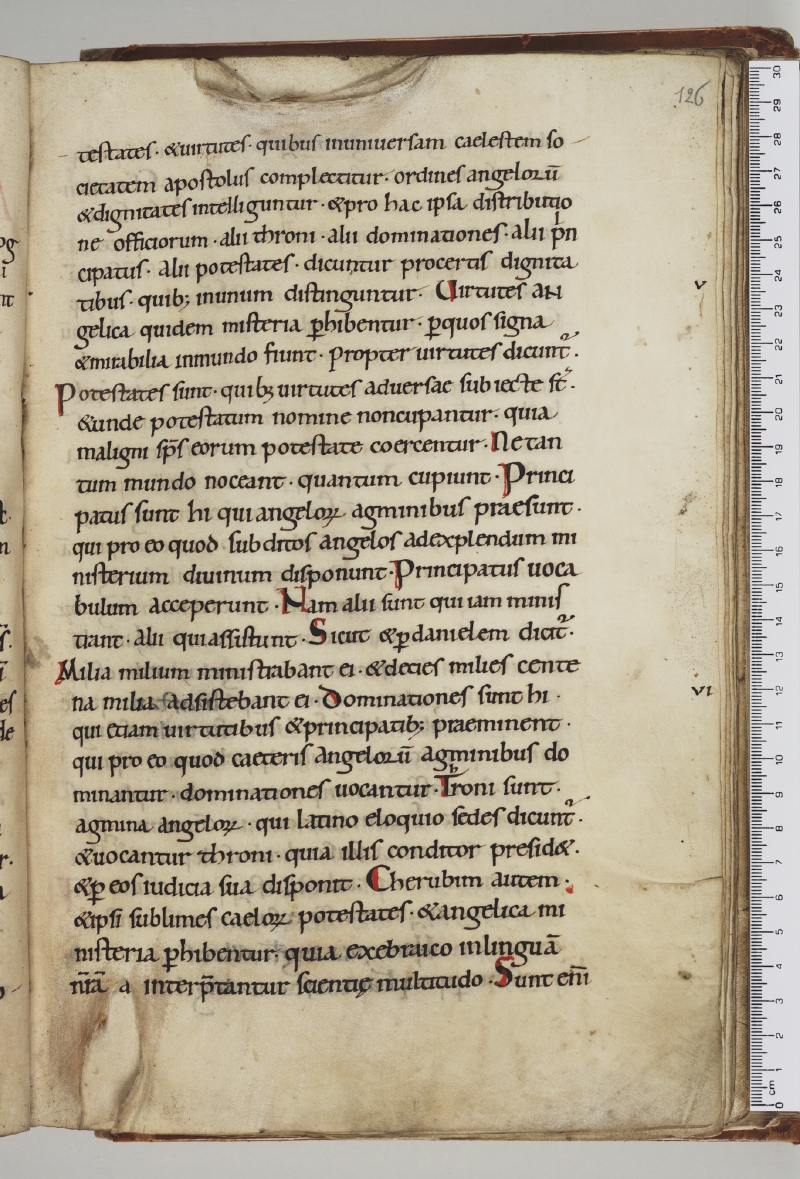 126
testates · &uirtutes · quibus inuniuersam caelestem so
cietatem apostolus complectitur · ordines angeloꝝ̄
&dignitates intelliguntur · &pro hac ipsa distributio
ne officiorum · alii throni · alii dominationes · alii p̍n
cipatus · alii potestates · dicuntur pro certis dignita
tibus · quib; inunum distinguntur · Uirtutes an
v
gelica quidem misteria ꝑhibentur · ꝑquos signa
&mirabilia inmundo fiunt · Propter uirtutes dicunt᷑ .
Potestates sunt · quib; uirtutes adversae subiecte st̄ .
&unde potestatum nomine noncupantur · quia
maligni sp̄s eorum potestate coercentur · Ne tan
tum mundo noceant · quantum cupiunt · Princi
patus sunt hi qui angeloꝝ agminibus praesunt ·
qui pro eo quod subditos angelos adexplendum mi
nisterium diuinum disponunt · Principatus uoca
bulum acceperunt · Nam alii sunt qui iam minis
trant · alii qui assistunt · Sicut &ꝑ danielem dicit᷑ ·
Milia milium ministrabant ei · &decies milies cente
na milia adsistebant ei · Dominationes sunt hi ·
vi
qui etiam uirtutibus &principatib; praeminent ·
qui pro eo quod caeteris angeloꝝ̄ agminibus do
minantur · dominationes uocantur · Tʰroni sunt ·
agmina angeloꝝ · qui latino eloquio sedes dicunt᷑ ·
&uocantur throni · quia illis conditor presid& ·
&ꝑ eos iudicia sua disponit · Cherubim autem ·
&ipsi sublimes caeloꝝ potestates · &angelica mi
nisteria ꝑhibentur · quia exebraico inlinguā
nr̄ā a interp̄tantur scientię multitudo · Sunt eni̅